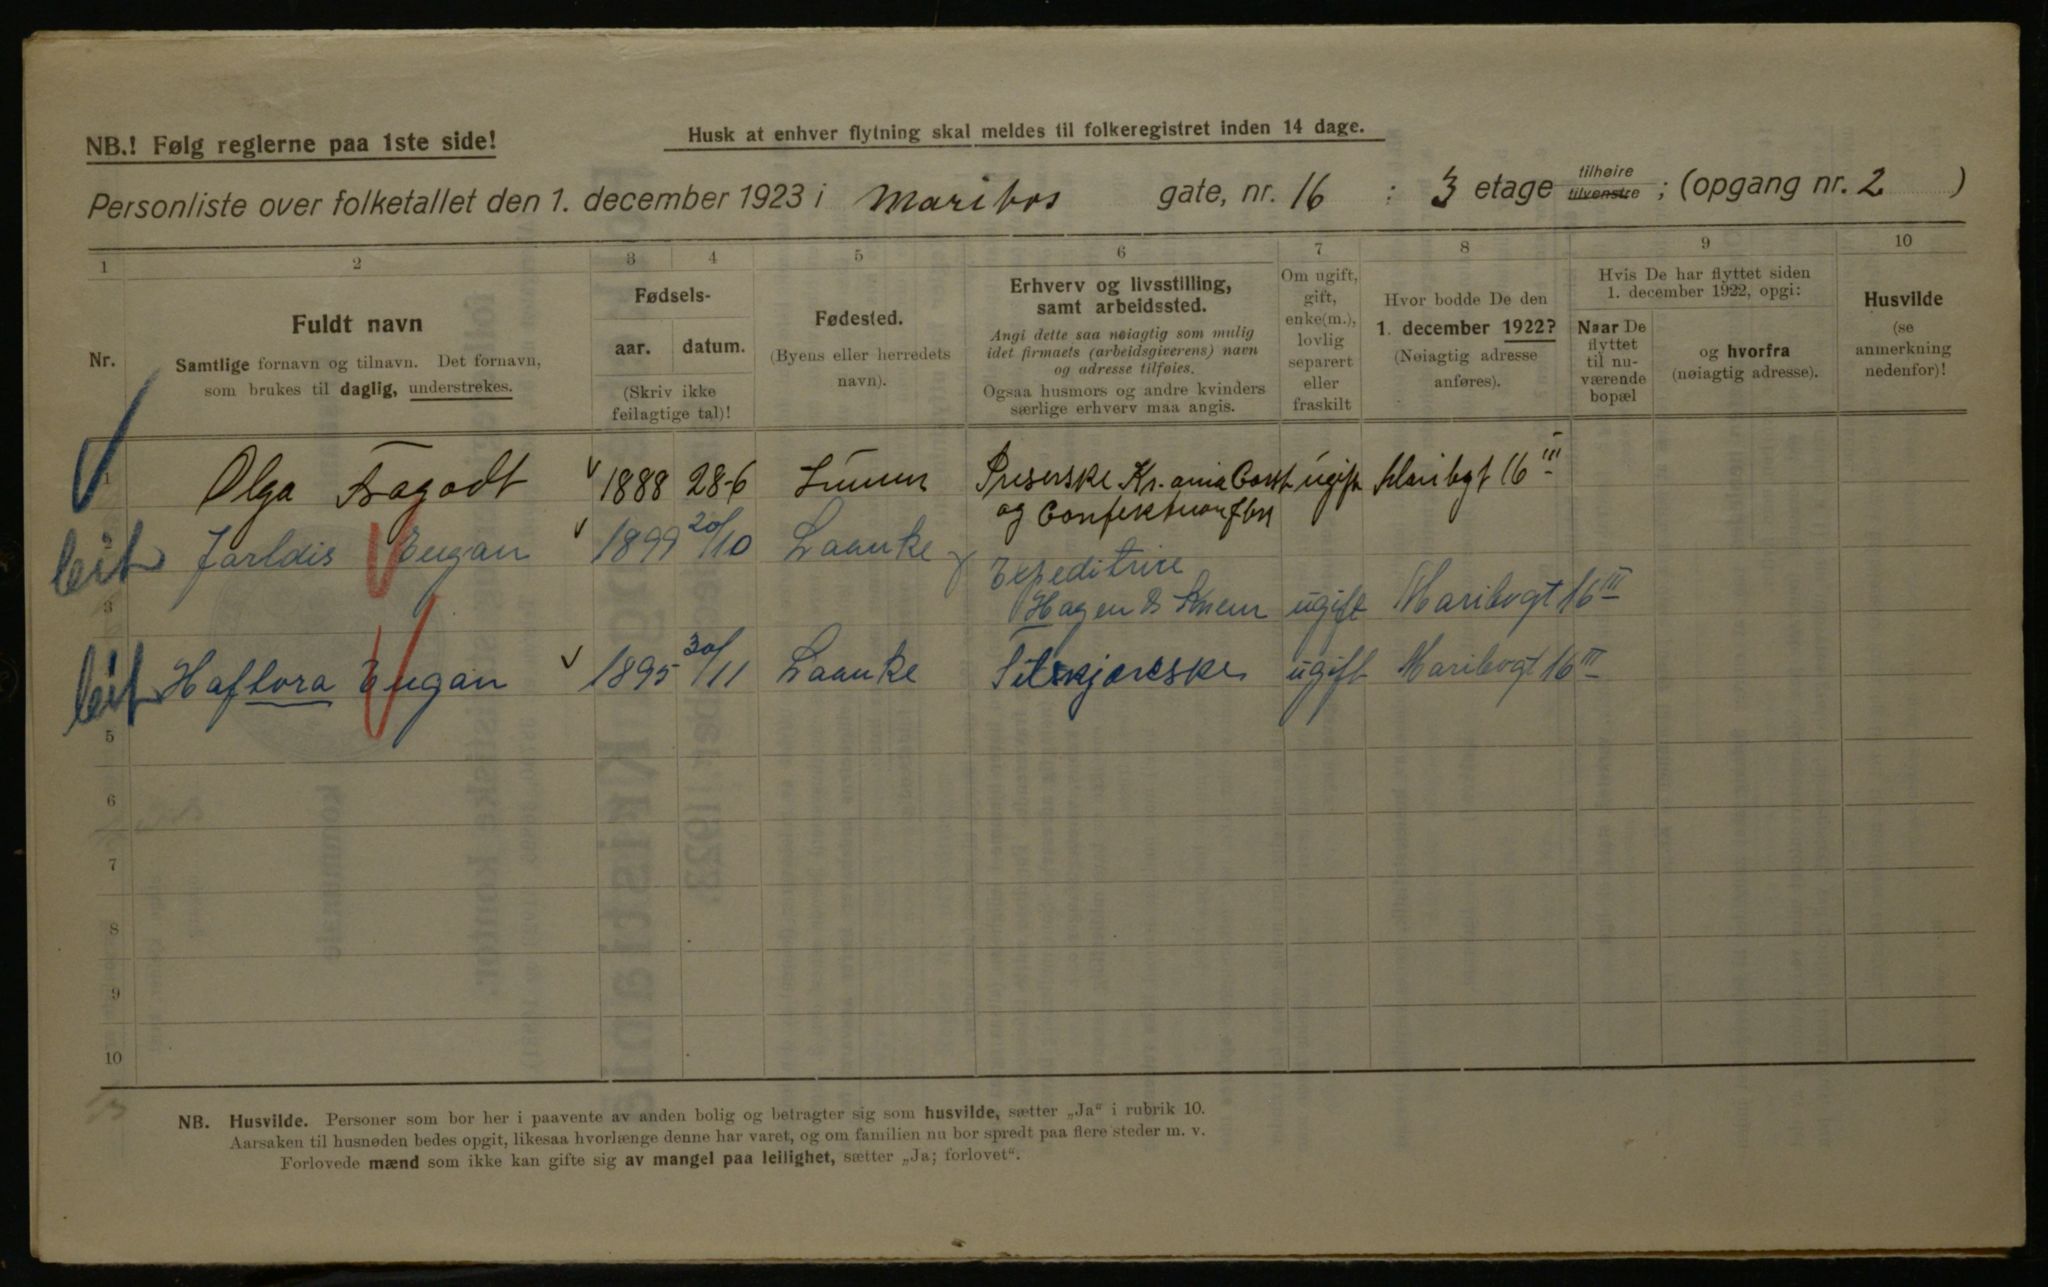 NB.! Følg reglerne paa 1ste side!
Husk at enhver flytning skal meldes til folkeregistret inden 14 dage.
Personliste over folketallet den 1. december 1923 i Maribos gate, nr. 16 : 3 etage tilhøire tilvenstre ; (opgang nr. 2 )
1 2 3 4 5 6 7 8 9 10
Nr.
Fuldt navn
Samtlige fornavn og tilnavn. Det fornavn,
som brukes til daglig, understrekes.
Fødsels-
aar. datum.
(Skriv ikke
feilagtige tal)!
Fødested.
(Byens eller herredets
navn).
Erhverv og livsstilling,
samt arbeidssted.
Angi dette saa nøiagtig som mulig
idet firmaets (arbeidsgiverens) navn
og adresse tilføies.
Ogsaa husmors og andre kvinders
særlige erhverv maa angis.
Om ugift,
gift,
enke(m.),
lovlig
separert
eller
fraskilt
Hvor bodde De den
1. december 1922?
(Nøiagtig adresse
anføres).
Hvis De har flyttet siden
1. december 1922, opgi:
Naar De
flyttet
til nu-
værende
bopæl
og hvorfra
(nøiagtig adresse).
Husvilde
(se
anmerkning
nedenfor)!
1 Olga 1888 28-6 Preserske Kr.ania ugift Maribgt 16 III
og
leit Jarldis Eugan 1899 20/10 Laanke Expeditrise
3 Hagen & ugift Maribogt 16 III
leit Haftora Eugan 1895 30/11 Laanke ugift Maribogt 16 III
5
6
7
8
9
10
NB. Husvilde. Personer som bor her i paavente av anden bolig og betragter sig som husvilde, sætter „Ja“ i rubrik 10.
Aarsaken til husnøden bedes opgit, likesaa hvorlænge denne har varet, og om familien nu bor spredt paa flere steder m. v.
Forlovede mænd som ikke kan gifte sig av mangel paa leilighet, sætter „Ja; forlovet“.